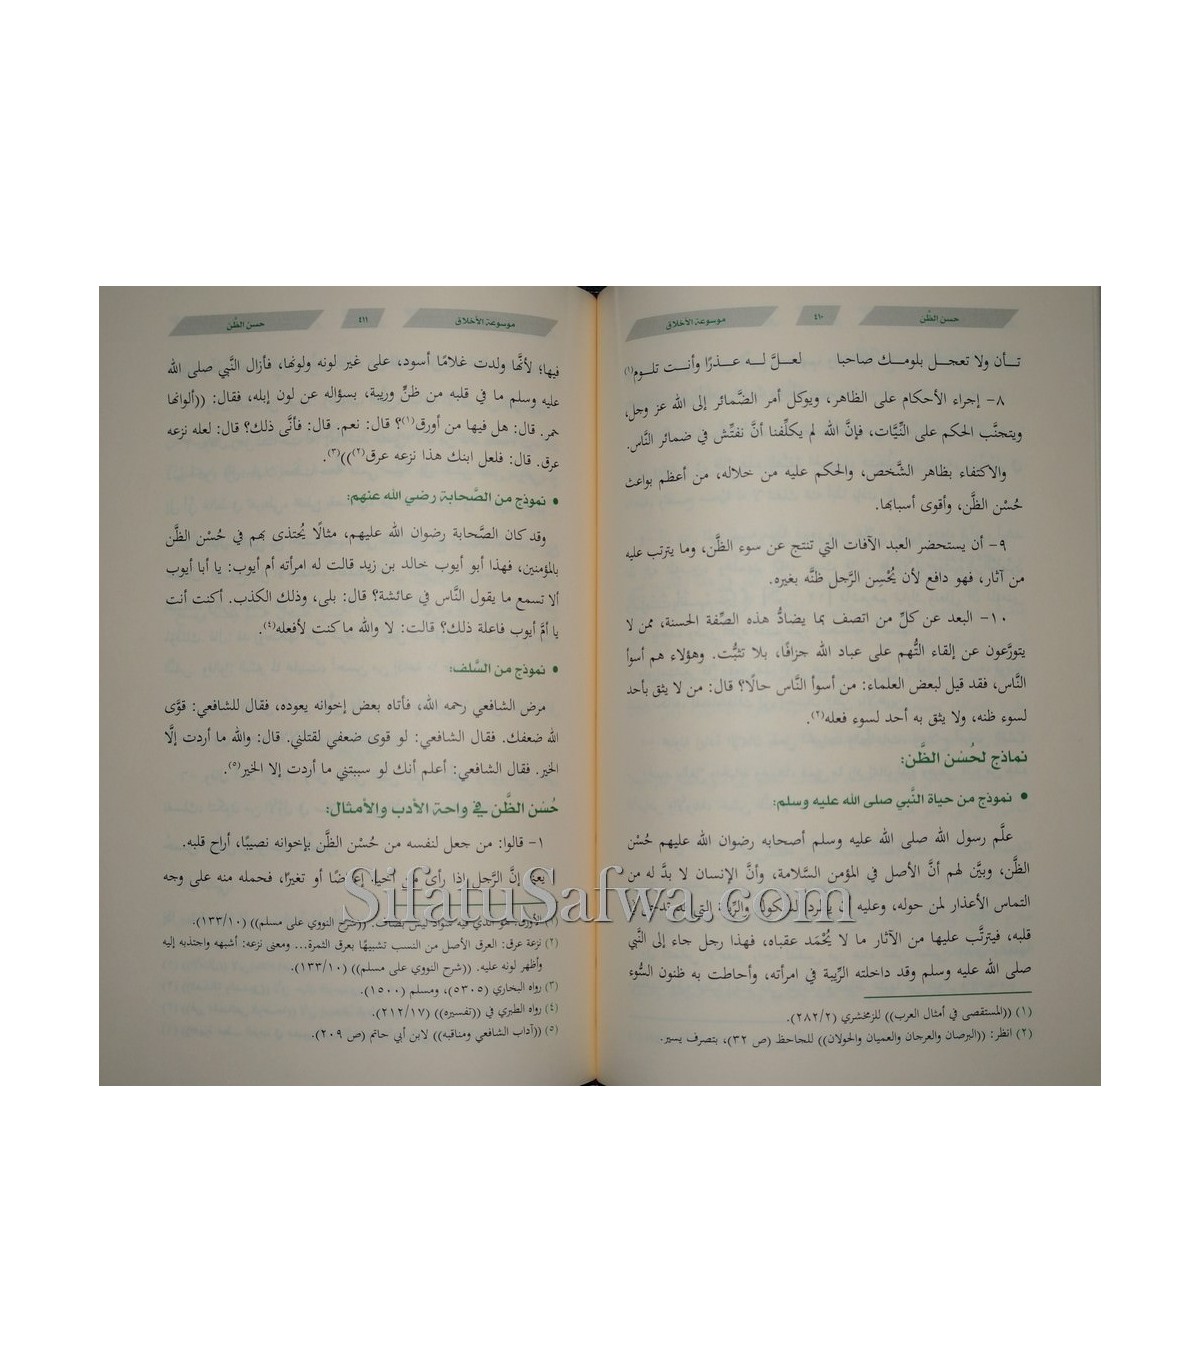 حسن الظَّن ٤١٠ موسوعة الأخلاق
تـأن ولا تعجـل بلومـك صاحبا لعـلَّ لـه عـذرًا وأنـت تلـوم(١)
٨- إجراء الأحكام على الظاهر، ويوكل أمر الضَّمائر إلى الله عز وجل،
ويتجنَّب الحكم على النِّيَّات، فإنَّ الله لم يكلِّفنا أنَّ نفتِّش في ضمائر النَّاس.
والاكتفاء بظاهر الشَّخص، والحكم عليه من خلاله، من أعظم بواعث
حُسْن الظَّن، وأقوى أسبابها.
٩- أن يستحضر العبد الآفات التي تنتج عن سوء الظَّن، وما يترتب عليه
من آثار، فهو دافع لأن يُحْسِن الرَّجل ظنَّه بغيره.
١٠- البعد عن كلِّ من اتصف بما يضادُّ هذه الصِّفة الحسنة، ممن لا
يتورَّعون عن إلقاء التُّهم على عباد الله جزافًا، بلا تثبُّت. وهؤلاء هم أسوأ
النَّاس، فقد قيل لبعض العلماء: من أسوأ النَّاس حالًا؟ قال: من لا يثق بأحد
لسوء ظنه، ولا يثق به أحد لسوء فعله(٢).
نماذج لحُسْن الظَّن:
• نموذج من حياة النَّبي صلى الله عليه وسلم:
علَّم رسول الله صلى الله عليه وسلم أصحابه رضوان الله عليهم حُسْن
الظَّن، وبيَّن لهم أنَّ الأصل في المؤمن السَّلامة، وأنَّ الإنسان لا بدَّ له من
التماس الأعذار لمن حوله، وعليه أن يطرد الشكوك والرِّيبة التي قد تدخل في
قلبه، فيترتَّب عليها من الآثار ما لا يُحْمَد عقباه، فهذا رجل جاء إلى النَّبي
صلى الله عليه وسلم وقد داخلته الرِّيبة في امرأته، وأحاطت به ظنون السُّوء
(١) ((المستقصى في أمثال العرب)) للزمخشري (٢٨٢/٢).
(٢) انظر: ((البرصان والعرجان والعميان والحولان)) للجاحظ (ص ٣٢)، بتصرف يسير.
موسوعة الأخلاق ٤١١ حسن الظَّن
فيها؛ لأنَّها ولدت غلامًا أسود، على غير لونه ولونها، فأزال النَّبي صلى الله
عليه وسلم ما في قلبه من ظنٍّ وريبة، بسؤاله عن لون إبله، فقال: ((ألوانها
حمر. قال: هل فيها من أورق(١)؟ قال: نعم. قال: فأنَّى ذلك؟ قال: لعله نزعه
عرق. قال: فلعل ابنك هذا نزعه عرق(٢)))(٣).
• نموذج من الصَّحابة رضي الله عنهم:
وقد كان الصَّحابة رضوان الله عليهم، مثالًا يُحتذى بهم في حُسْن الظَّن
بالمؤمنين، فهذا أبو أيوب خالد بن زيد قالت له امرأته أم أيوب: يا أبا أيوب
ألا تسمع ما يقول النَّاس في عائشة؟ قال: بلى، وذلك الكذب. أكنت أنت
يا أمَّ أيوب فاعلة ذلك؟ قالت: لا والله ما كنت لأفعله(٤).
• نموذج من السَّلف:
مرض الشافعي رحمه الله، فأتاه بعض إخوانه يعوده، فقال للشافعي: قوَّى
الله ضعفك. فقال الشافعي: لو قوى ضعفي لقتلني. قال: والله ما أردت إلَّا
الخير. فقال الشافعي: أعلم أنك لو سببتني ما أردت إلا الخير(٥).
حُسْن الظَّن في واحة الأدب والأمثال:
١- قالوا: من جعل لنفسه من حُسْن الظَّن بإخوانه نصيبًا، أراح قلبه.
يعني إنَّ الرَّجل إذا رأى من أخيه إعراضًا أو تغيرًا، فحمله منه على وجه
(١) الأورق: هو الذي فيه سواد ليس بصاف. ((شرح النووي على مسلم)) (١٣٣/١٠).
(٢) نزعة عرق: العرق الأصل من النسب تشبيهًا بعرق الثمرة... ومعنى نزعه: أشبهه واجتذبه إليه
وأظهر لونه عليه. ((شرح النووي على مسلم)) (١٣٣/١٠).
(٣) رواه البخاري (٥٣٠٥)، ومسلم (١٥٠٠).
(٤) رواه الطبري في ((تفسيره)) (٢١٢/١٧).
(٥) ((آداب الشافعي ومناقبه)) لابن أبي حاتم (ص ٢٠٩).
SifatuSafwa.com